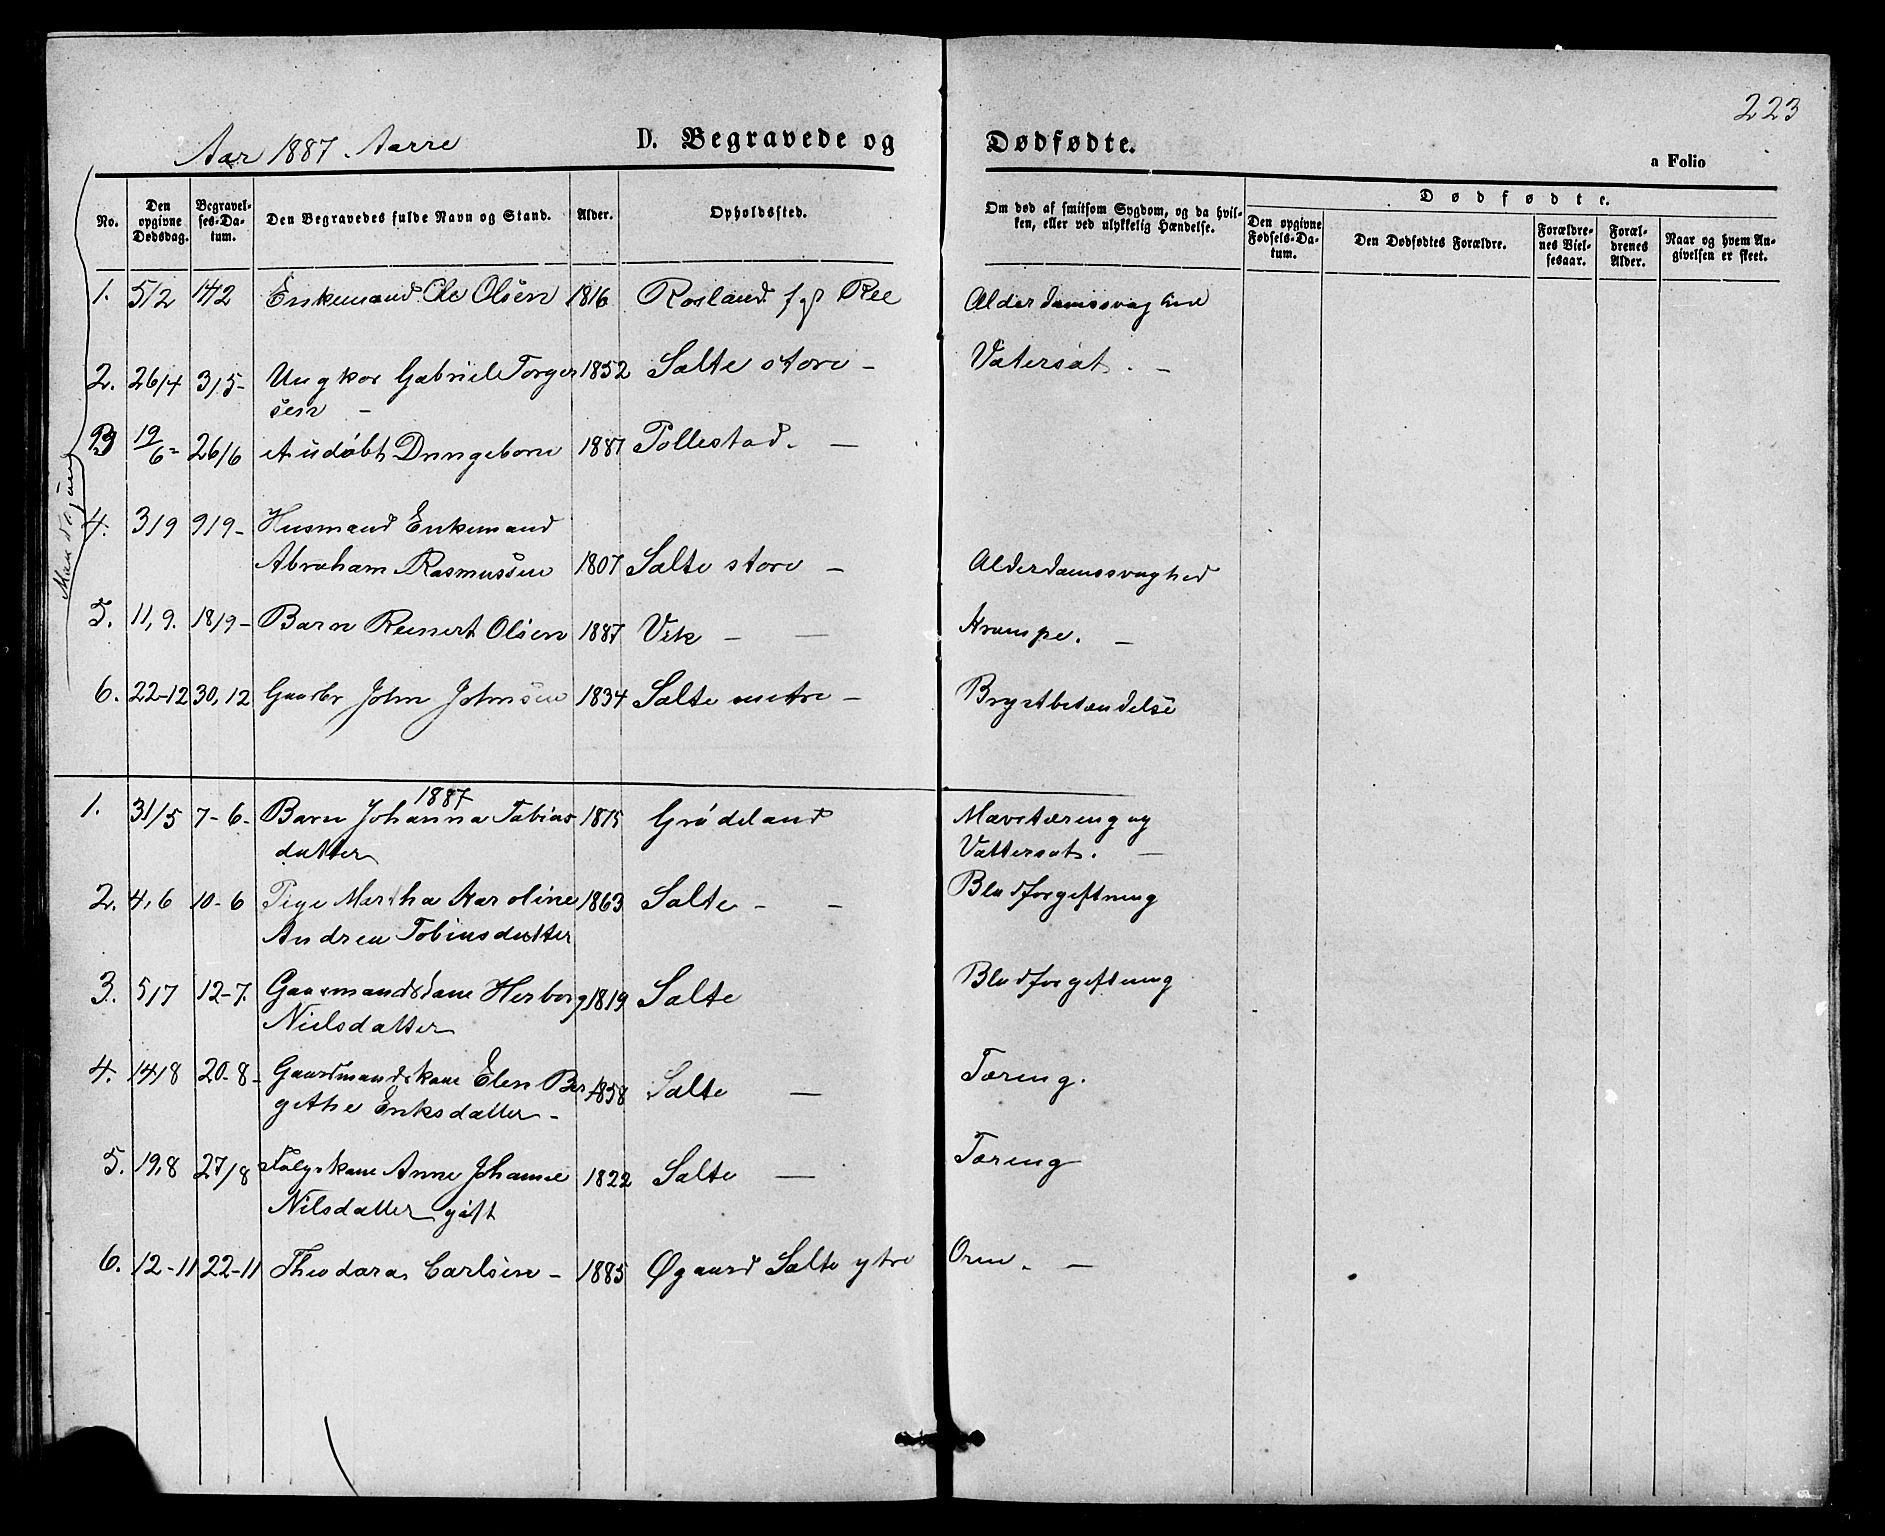 223
Aar 1887. Aarre
D. Begravede og Dødfødte.
a Folio
No.
Den opgivne Dødsdag.
Begravel-ses-Da-tum.
Den Begravedes fulde Navn og Stand.
Alder.
Opholdssted.
Om død af smitsom Sygdom, og da hvil-
ken, eller ved ulykkelig Hændelse.
Dødfødte.
Den opgivne Fødsels-Da-tum.
Den Dødfødtes Forældre.
Forældre-nes Viel-sesaar.
Foræl-drenes Alder.
Naar og hvem An-givelsen er skeet.
Mandkjøn
1. 5/2 14/2 Enkemand Ole Olsen 1816 Rosland. fgd Ree Alderdamssvaghed
2. 26/4 3/5- Ungkar Gabriel Torger 1852 Salte store - Vatersot. -
sen -
3 19/6- 26/6 Audøbt Drngeborn 1887 Pollestad. -
4. 3/9 9/9- Husmand Enkemand
Abraham Rasmussen 1807 Salte store - Alderdamssvaghed
5. 11,9. 18/9- Barn Reinert Olsen 1887 Vik - - Krampe. -
6. 22-12 30,12 Gaardbr John Johnsen 1834 Salte netre - Brystbetændelse
1887
1. 31/5 7-6- Barn Johanna Tobias 1875 Grødeland Mavetæring og
datter Vattersot. -
2. 4,6 10-6 Pige Mertha Karoline 1863 Salte - - Blodforgiftning
Andrea Tobiasdatter
3. 5/7 12-7. Gaarmandskane Herborg 1819 Salte Blodforgiftning
Nielsdatter
4. 14/8 20-8- Gaardmandskane Elen Ber 1858 Salte - Tæring.
githe Eriksdatter -
5. 19,8 27/8 Følgskane Anne Johanne 1822 Salte - Tæring
Nilsdatter gift
6. 12-11 22-11 Theodora Carlsen - 1885 Øgaard Salte ytre Orm. -